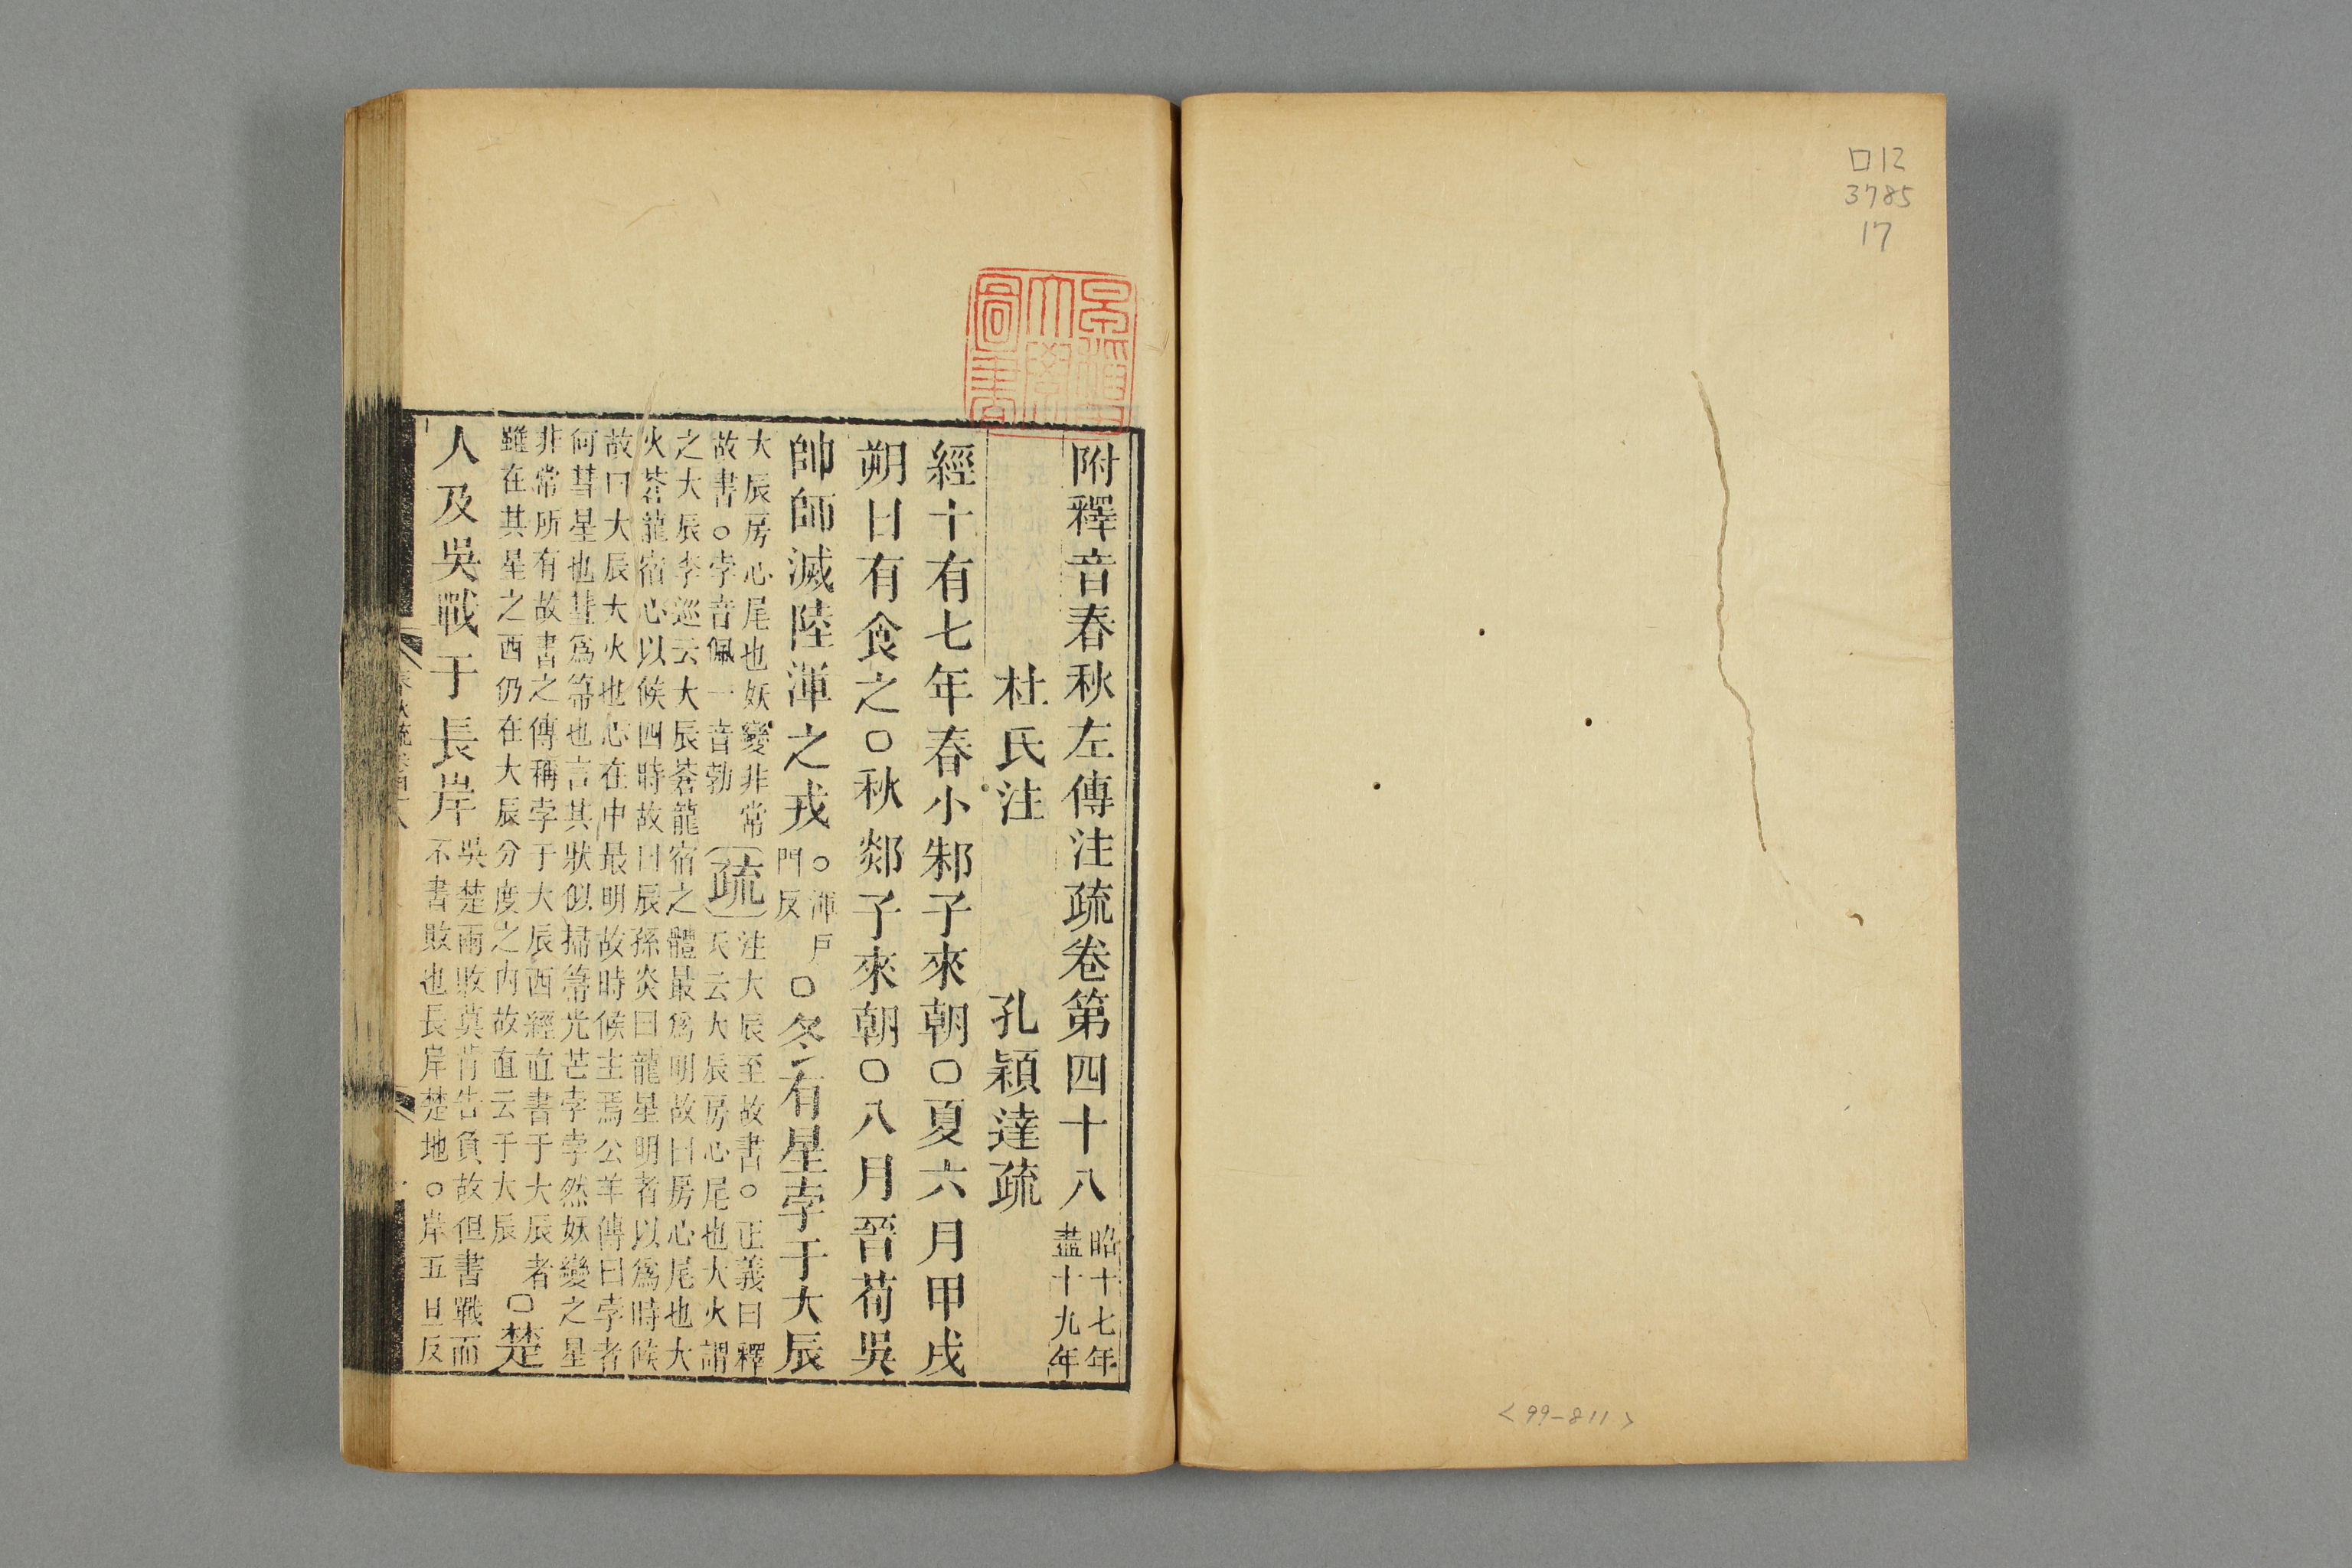 ロ12
3785
17
<99-811>
早稲田大學圖書
附釋音春秋左傳注疏卷第四十八 昭十七年 盡十九年
杜氏注 孔穎達疏
經十有七年春小邾子來朝○夏六月甲戌
朔日有食之○秋郯子來朝○八月晉荀吳
帥師滅陸渾之戎 ○渾戶 門反 ○冬有星孛于大辰
大辰房心尾也妖變非常
故書○孛音佩一音勃
疏
注大辰至故書○正義曰釋
天云大辰房心尾也大火謂
之大辰李巡云大辰蒼龍宿之體最爲明故曰房心尾也大
火蒼龍宿心以候四時故曰辰孫炎曰龍星明者以爲時候
故曰大辰大火也心在中最明故時候主焉公羊傳曰孛者
何彗星也彗爲箒也言其狀似掃箒光芒孛孛然妖變之星
非常所有故書之傳稱孛于大辰西經直書于大辰者
雖在其星之西仍在大辰分度之内故直云于大辰
○楚
人及吳戰于長岸
吳楚兩敗莫肯告負故但書戰而
不書敗也長岸楚地○岸五旦反